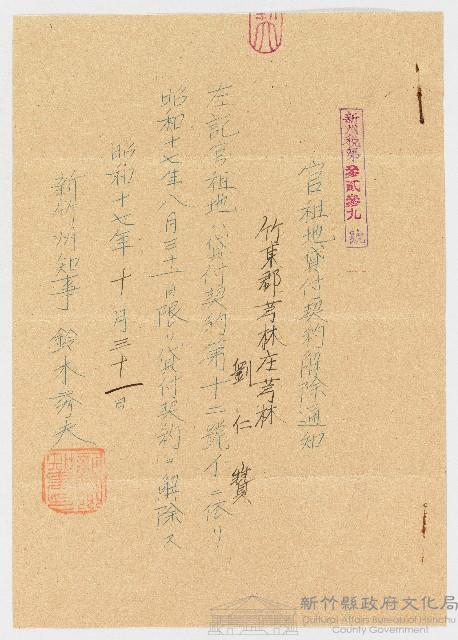 新州稅第參貳參九號
官租地貸付契約解除通知
竹東郡芎林庄芎林
劉仁贊
左記官租地ハ貸付契約第十二號イニ依リ
昭和十七年八月三十一日限リ貸付契約ヲ解除ス
昭和十七年十月三十一日
新竹州知事 鈴木
新竹縣政府文化局
Cultural Affairs Bureau of Hsinchu
County Government